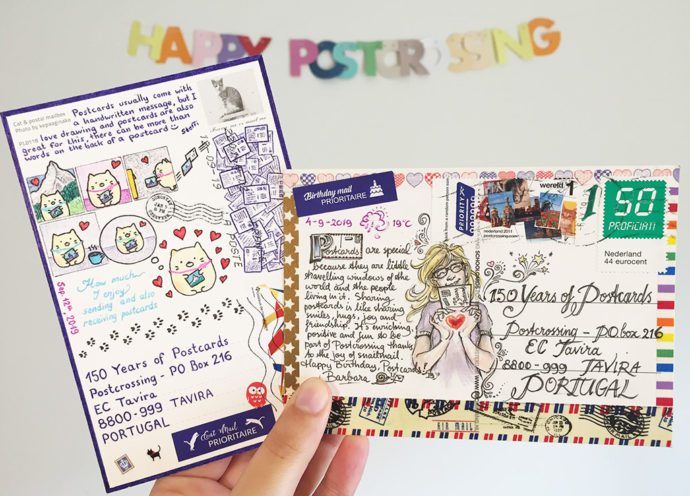 HAPPY POSTCROSSING
Cat & postal mailbox
Postcards usually come with
a handwritten message, but I
love drawing and postcards are also
great for this, there can be more than
words on the back of a postcard
How much
I enjoy
sending and also
receiving postcards
Sep 12th, 2019
150 Years of Postcards
Postcrossing - PO Box 216
EC Tavira
8800-999 TAVIRA
PORTUGAL
PRIORITAIRE
Birthday mail
PRIORITAIRE
4-9-2019 19°C
Postcards are special
because they are little
travelling windows of the
world and the people
living in it. Sharing
postcards is like sharing
smiles, hugs, joy and
friendship. It's enriching,
positive and fun to be
part of Postcrossing thanks
to the joy of snailmail.
Happy Birthday, Postcards
Barbara
PRIORITY
wereld 1
nederland 2011
postcrossing.com
1
50
PROFICIAT!
Nederland
44 eurocent
150 Years of Postcards
Postcrossing - P.O. box 216
EC Tavira
8800-999 TAVIRA
PORTUGAL
AIR MAIL